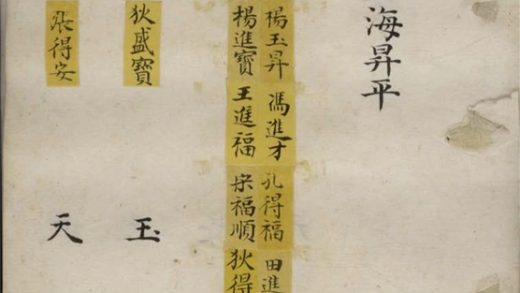 海昇平
楊玉昇
馮進才
孔得福
田進
楊進寶
王進福
宋福順
狄得
狄盛寶
玉
張得安
天